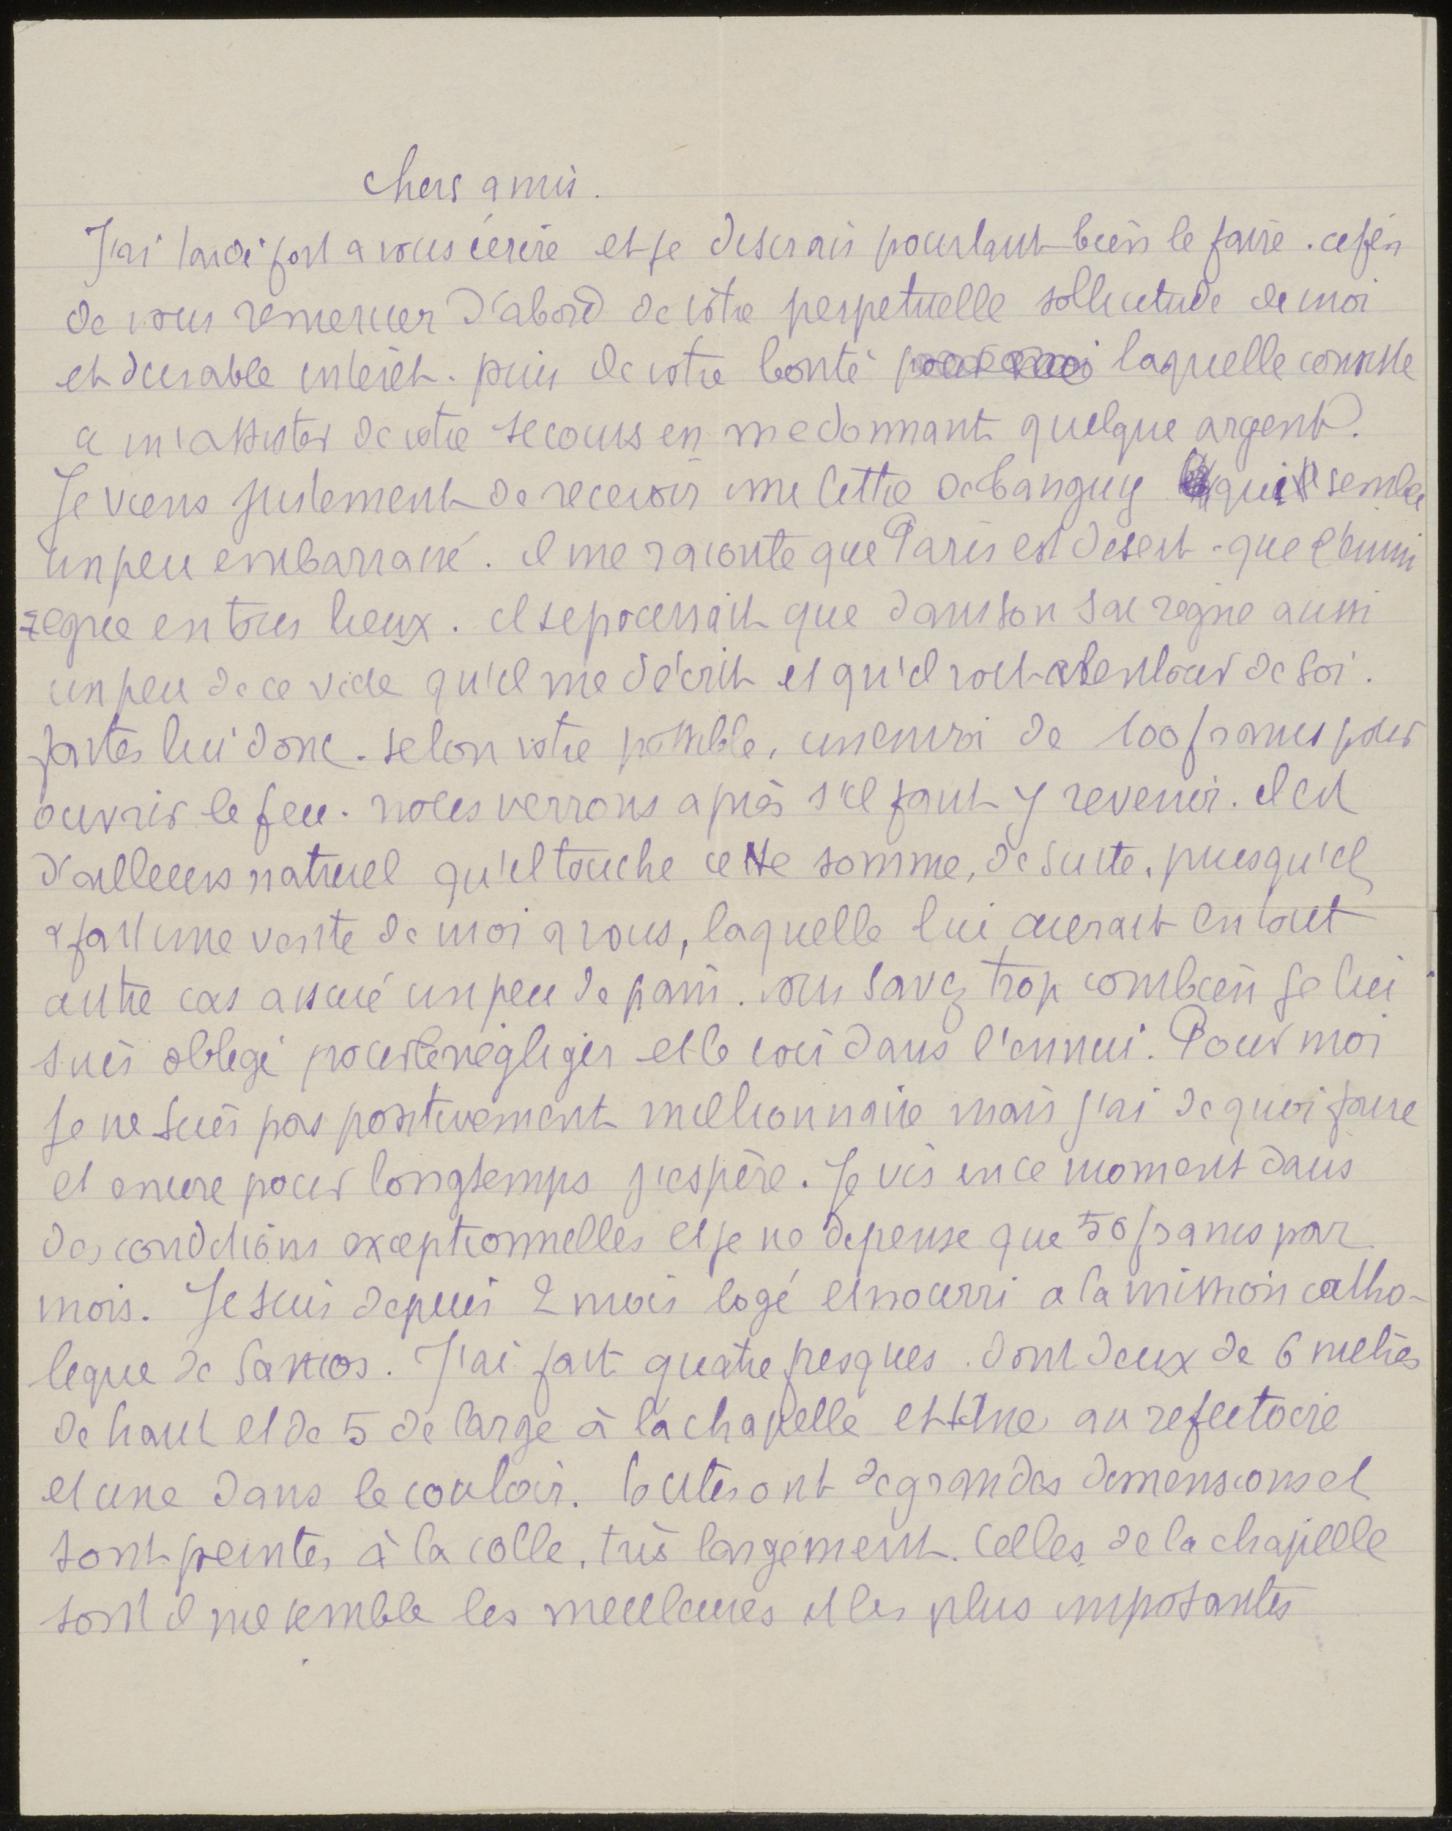 chers amis.
J'ai tardé fort a vous écrire et je desirais pourtant bien le faire. afin
de vous remercier d'abord de votre perpetuelle sollicitude de moi
et durable interêt. puis de votre bonté laquelle consiste
a m'assister de votre secours en me donnant quelque argent.
Je viens justement de recevoir une lettre de Tanguy qui semble
un peu embarrassé. il me raconte que Paris est désert. que l'ennui
regne en tous lieux. il se pourrait que dans son sac règne aussi
un peu de ce vide qu'il me décrit et qu'il voit alentour de soi.
faites lui donc. selon votre possible, un envoi de 100 francs pour
ouvrir le feu. nous verrons après s'il faut y revenir. il est
d'ailleurs naturel qu'il touche cette somme, de suite, puisqu'il
a fait une vente de moi a vous, laquelle lui aurait en tout
autre cas assuré un peu de pain. vous savez trop combien je lui
suis obligé pour le négliger et le voir dans l'ennui. Pour moi
je ne suis pas positivement millionnaire mais j'ai de quoi faire
et encore pour longtemps j'espère. Je vis en ce moment dans
des conditions exceptionnelles et je ne depense que 50 francs par
mois. Je suis depuis 2 mois logé et nourri a la mission catho-
lique de . J'ai fait quatre fresques. dont deux de 6 metres
de haut et de 5 de large à la chapelle et une au refectoire
et une dans le couloir. toutes ont de grandes dimensions et
sont peintes à la colle, très largement. Celles de la chapelle
sont il me semble les meilleures et les plus imposantes